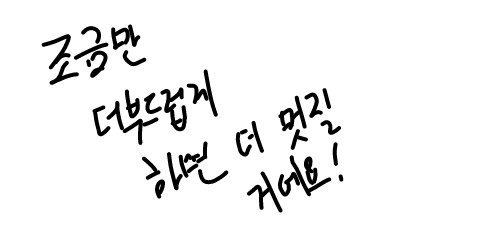 조금만
더부드럽게
하면 더 멋질
거에요!